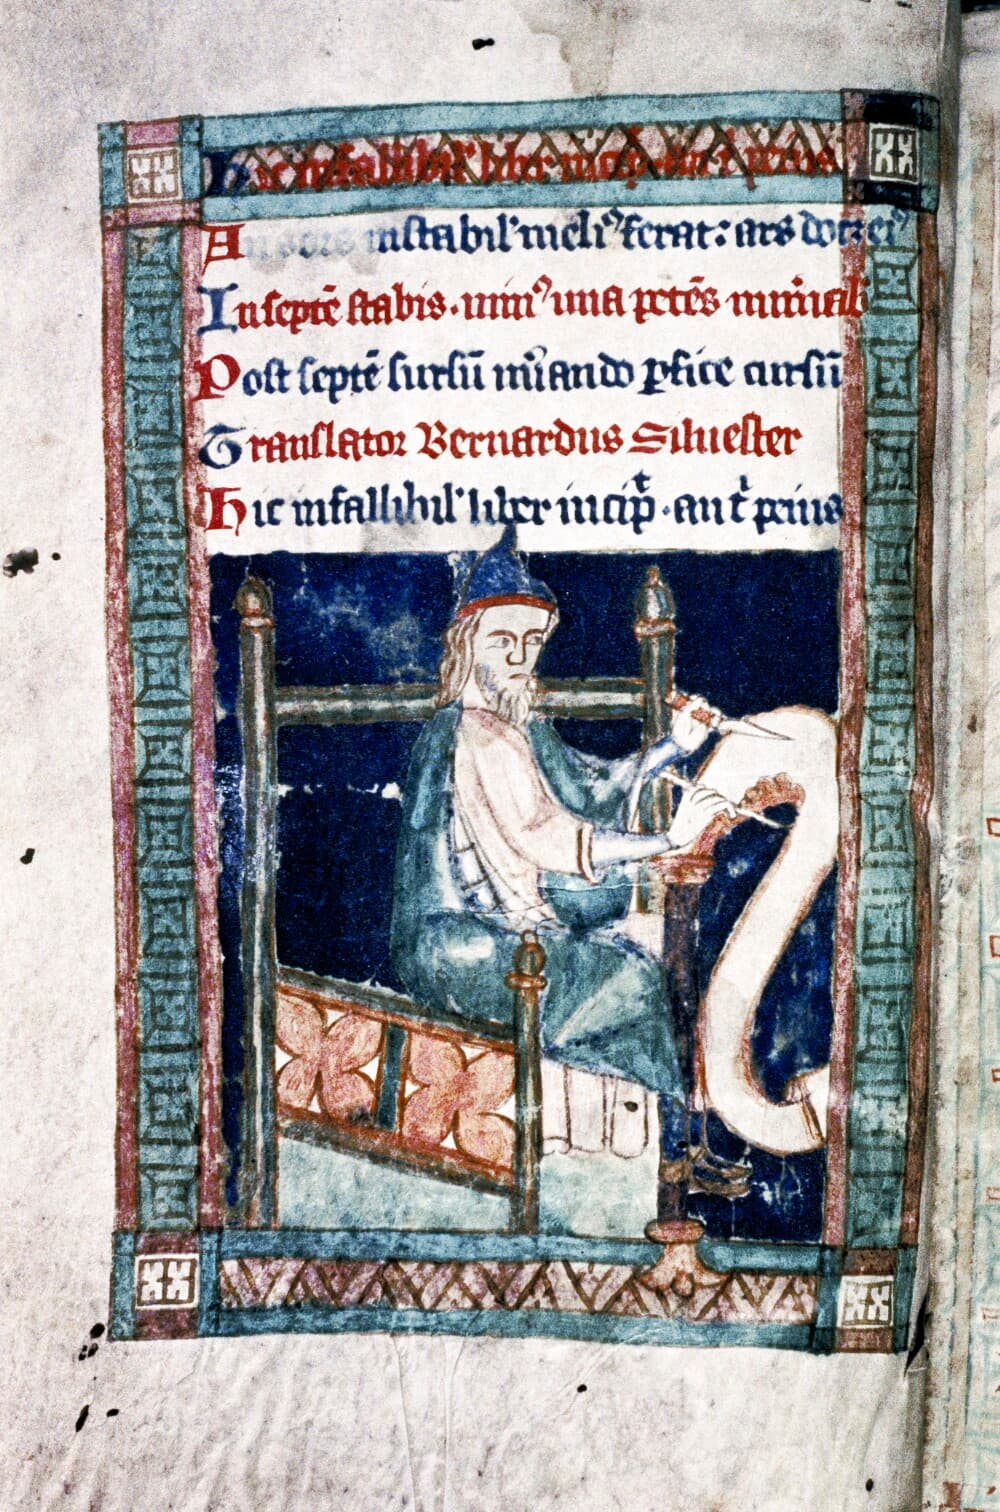 Hic infallibil' liber incip
A instabil' meli⁹ ferat: ars docz ei⁹
In septē stabis. min⁹ una petēs num̄ab
Post septē sursū nūando ꝑfice cursū
Translator Bernardus Siluester
Hic infallibil' liber incip̄. aut̄ prius